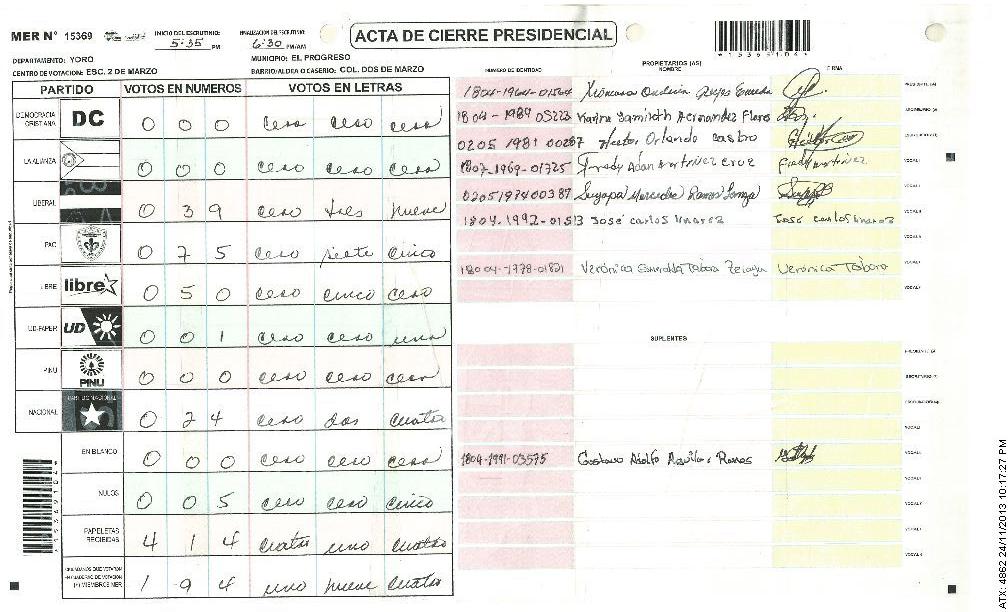 MER N° 15369
INICIO DEL ESCRUTINIO: 5:35 PM
FINALIZACION DEL ESCRUTINIO: 6:30 PM/AM
ACTA DE CIERRE PRESIDENCIAL
DEPARTAMENTO: YORO
MUNICIPIO: EL PROGRESO
CENTRO DE VOTACION: ESC. 2 DE MARZO
BARRIO/ALDEA O CASERIO: COL. DOS DE MARZO
PARTIDO VOTOS EN NUMEROS VOTOS EN LETRAS
DEMOCRACIA CRISTIANA DC 0 0 0 cero cero cero
LA ALIANZA 0 0 0 cero cero cero
LIBERAL 0 39 cero tres nueve
PAC 0 7 5 cero siete cinco
LIBRE libre 0 5 0 cero cinco cero
UD-FAPER UD 0 0 1 cero cero uno
PINU PINU 0 0 0 cero cero cero
NACIONAL PARTIDO NACIONAL 0 24 cero dos cuatro
EN BLANCO 0 0 0 cero cero cero
NULOS 0 0 5 cero cero cinco
PAPELETAS RECIBIDAS 4 1 4 cuatro uno cuatro
CIUDADANOS QUE VOTARON EN CUADERNO DE VOTACION (+) MIEMBROS MER 1 9 4 uno nueve cuatro
NUMERO DE IDENTIDAD PROPIETARIOS (AS) NOMBRE FIRMA
1804-1964-01564 Reyes PRESIDENTE (A)
1804-1989-05223 Karina Yamileth Hernandez Flores
0205 1981 00267 Hector Orlando castro
1807-1969-01725 Fredy Adan Martinez Cruz Fredy Martinez VOCAL I
0205197400387 Suyapa Mercedes Ramos
1804-1992-01513 José carlos linarez José carlos linarez
Verónica Esmeralda Tabora Verónica Tabora
SUPLENTES
PRESIDENTE (A)
SECRETARIO (A)
1804-1991-03575 Gustavo Adolfo Aguilar Ramos
ATX: 4862 24/11/2013 10:17:27 PM